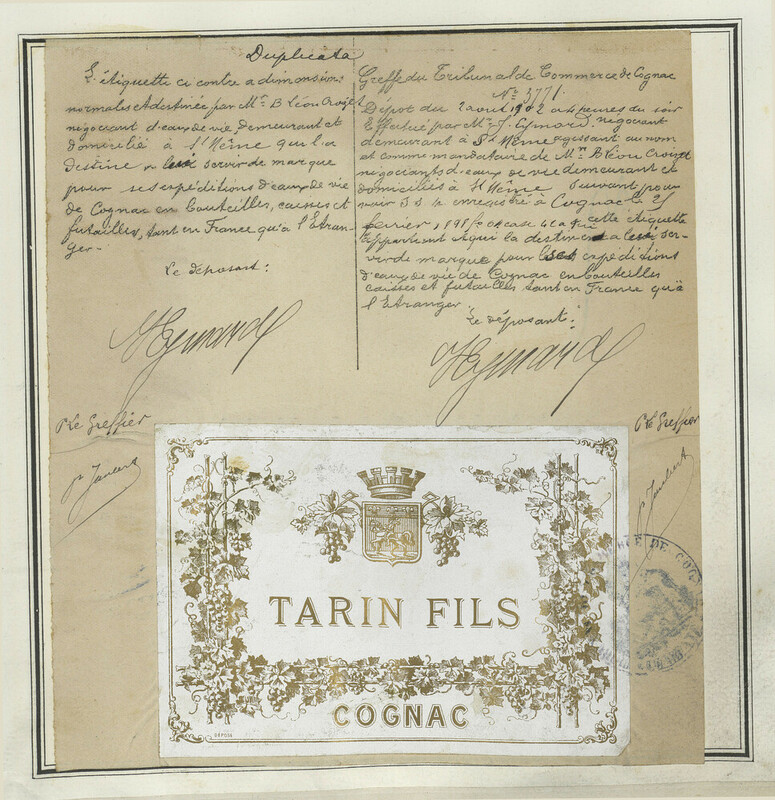 Duplicata
L'étiquette ci contre a dimensions
normales et destinée par Mr. B Léon Croizet
négociant d'eaux de vie, demeurant et
domicilié à St Même qui l'a
destine a servir de marque
pour ses expéditions d'eaux de vie
de Cognac en bouteilles, caisses et
futailles, tant en France qu'à l'Etran-
ger.
Le déposant:
Greffe du Tribunal de Commerce de Cognac
No 3771.
Dépôt du 2 aout 1902 a 4 heures du soir
Effectué par Mr J. Eymard, négociant
demeurant à St Même agissant au nom
et comme mandataire de Mr B Léon Croizet
négociants d'eaux de vie demeurant et
domiciliés à St Même Suivant pou-
voir S S. enregistré à Cognac le 25
février 1898 fo case cette étiquette
appartient qui la destinent a ser-
vir de marque pour expéditions
d'eaux de vie de Cognac en bouteilles
caisses et futailles tant en France qu'à
l'Etranger
Le déposant:
Eymard
Eymard
Le Greffier
Le Greffier
TARIN FILS
COGNAC
DÉPOSÉ
DE COGNAC